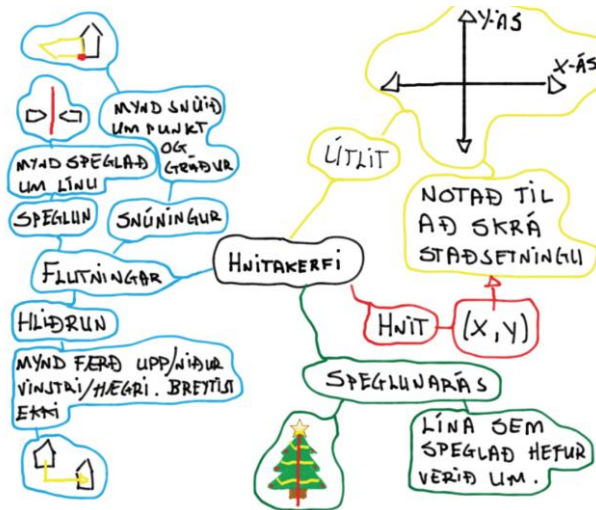 Y-ÁS
X-ÁS
MYND SNÚIÐ
UM PUNKT
OG
GRÁÐUR
MYND SPEGLAÐ
UM LÍNU
SPEGLUN
SNÚNINGUR
FLUTNINGAR
HLIÐRUN
MYND FÆRÐ UPP/NIÐUR
VINSTRI/HÆGRI. BREYTIST
EKKI
HNITAKERFI
ÚTLIT
NOTAÐ TIL
AÐ SKRÁ
STAÐSETNINGU
HNIT
(X,Y)
SPEGLUNARÁS
LÍNA SEM
SPEGLAÐ HEFUR
VERIÐ UM.